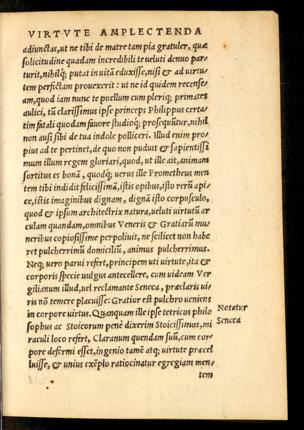 VIRTVTE AMPLECTENDA
adiunctas, ut ne tibi de matre tam pia gratuler, quæ
solicitudine quadam incredibili te ueluti denuo par-
turit, nihilq; putat in uitā eduxisse, nisi & ad uirtu
tem perfictam prouexerit: ut ne id quidem recense-
am, quod iam nunc te puellum cum pleriq; primates
aulici, tū clarissimus ipse princeps Philippus certa-
tim fatali quodam fauore studioq; prosequūtur, nihil
non ausi sibi de tua indole polliceri. Illud enim pro
pius ad te pertinet, de quo non pudut & sapientissi
mum illum regem gloriari, quod, ut ille ait, animam
sortitus es bonā, quodq; uerus ille Prometheus men
tem tibi indidit felicissimā, istis opibus, isto rerū api-
ce, istis imaginibus dignam, dignā isto corpusculo,
quod & ipsum architectrix natura, ueluti uirtutū ar
culam quandam, omnibus Veneris & Gratiarū mu
neribus copiosissime perpoliuit, ne scilicet non habe
ret pulcherrimū domiciliū, animus pulcherrimus.
Neq; uero parui refert, principem uti uirtute, ita &
corporis specie uulgus antecellere, cum uideam Ver
gilianum illud, uel reclamante Seneca, præclaris ui-
ris nō temere placuisse: Gratior est pulchro ueniens
in corpore uirtus. Quanquam ille ipse tetricus philo
sophus ac Stoicorum penè dixerim Stoicissimus, mi
raculi loco refert, Claranum quendam suū, cum cor-
pore deformi esset, ingenio tamē atq; uirtute præcel
luisse, & unius exēplo ratiocinatur egregiam men-
tem
Notatur
Seneca